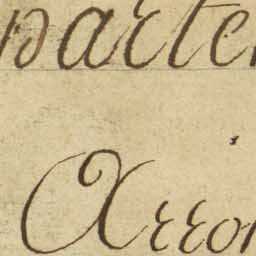 parte
Arron